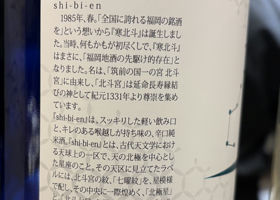 shi-bi-en
1985年、春。「全国に誇れる福岡の銘酒
を」という想いから『寒北斗』は誕生しまし
た。当時、何もかもが初尽くしで、『寒北斗』
はまさに、「福岡地酒の先駆け的存在」と
なりました。名は、「筑前の国一の宮 北斗
宮」に由来し、「北斗宮」は延命長寿縁結
びの神として紀元1331年より尊崇を集め
ています。
「shi-bi-en」は、スッキリした軽い飲み口
と、キレのある喉越しが持ち味の、辛口純
米酒。「shi-bi-en」とは、古代天文学におけ
る天球上の一区で、天の北極を中心とし
た星座のこと。その天区に見立てたラベル
には、北斗宮の紋、「七曜紋」を、星模様
で配し、その中央に一際煌めく、「北極星」